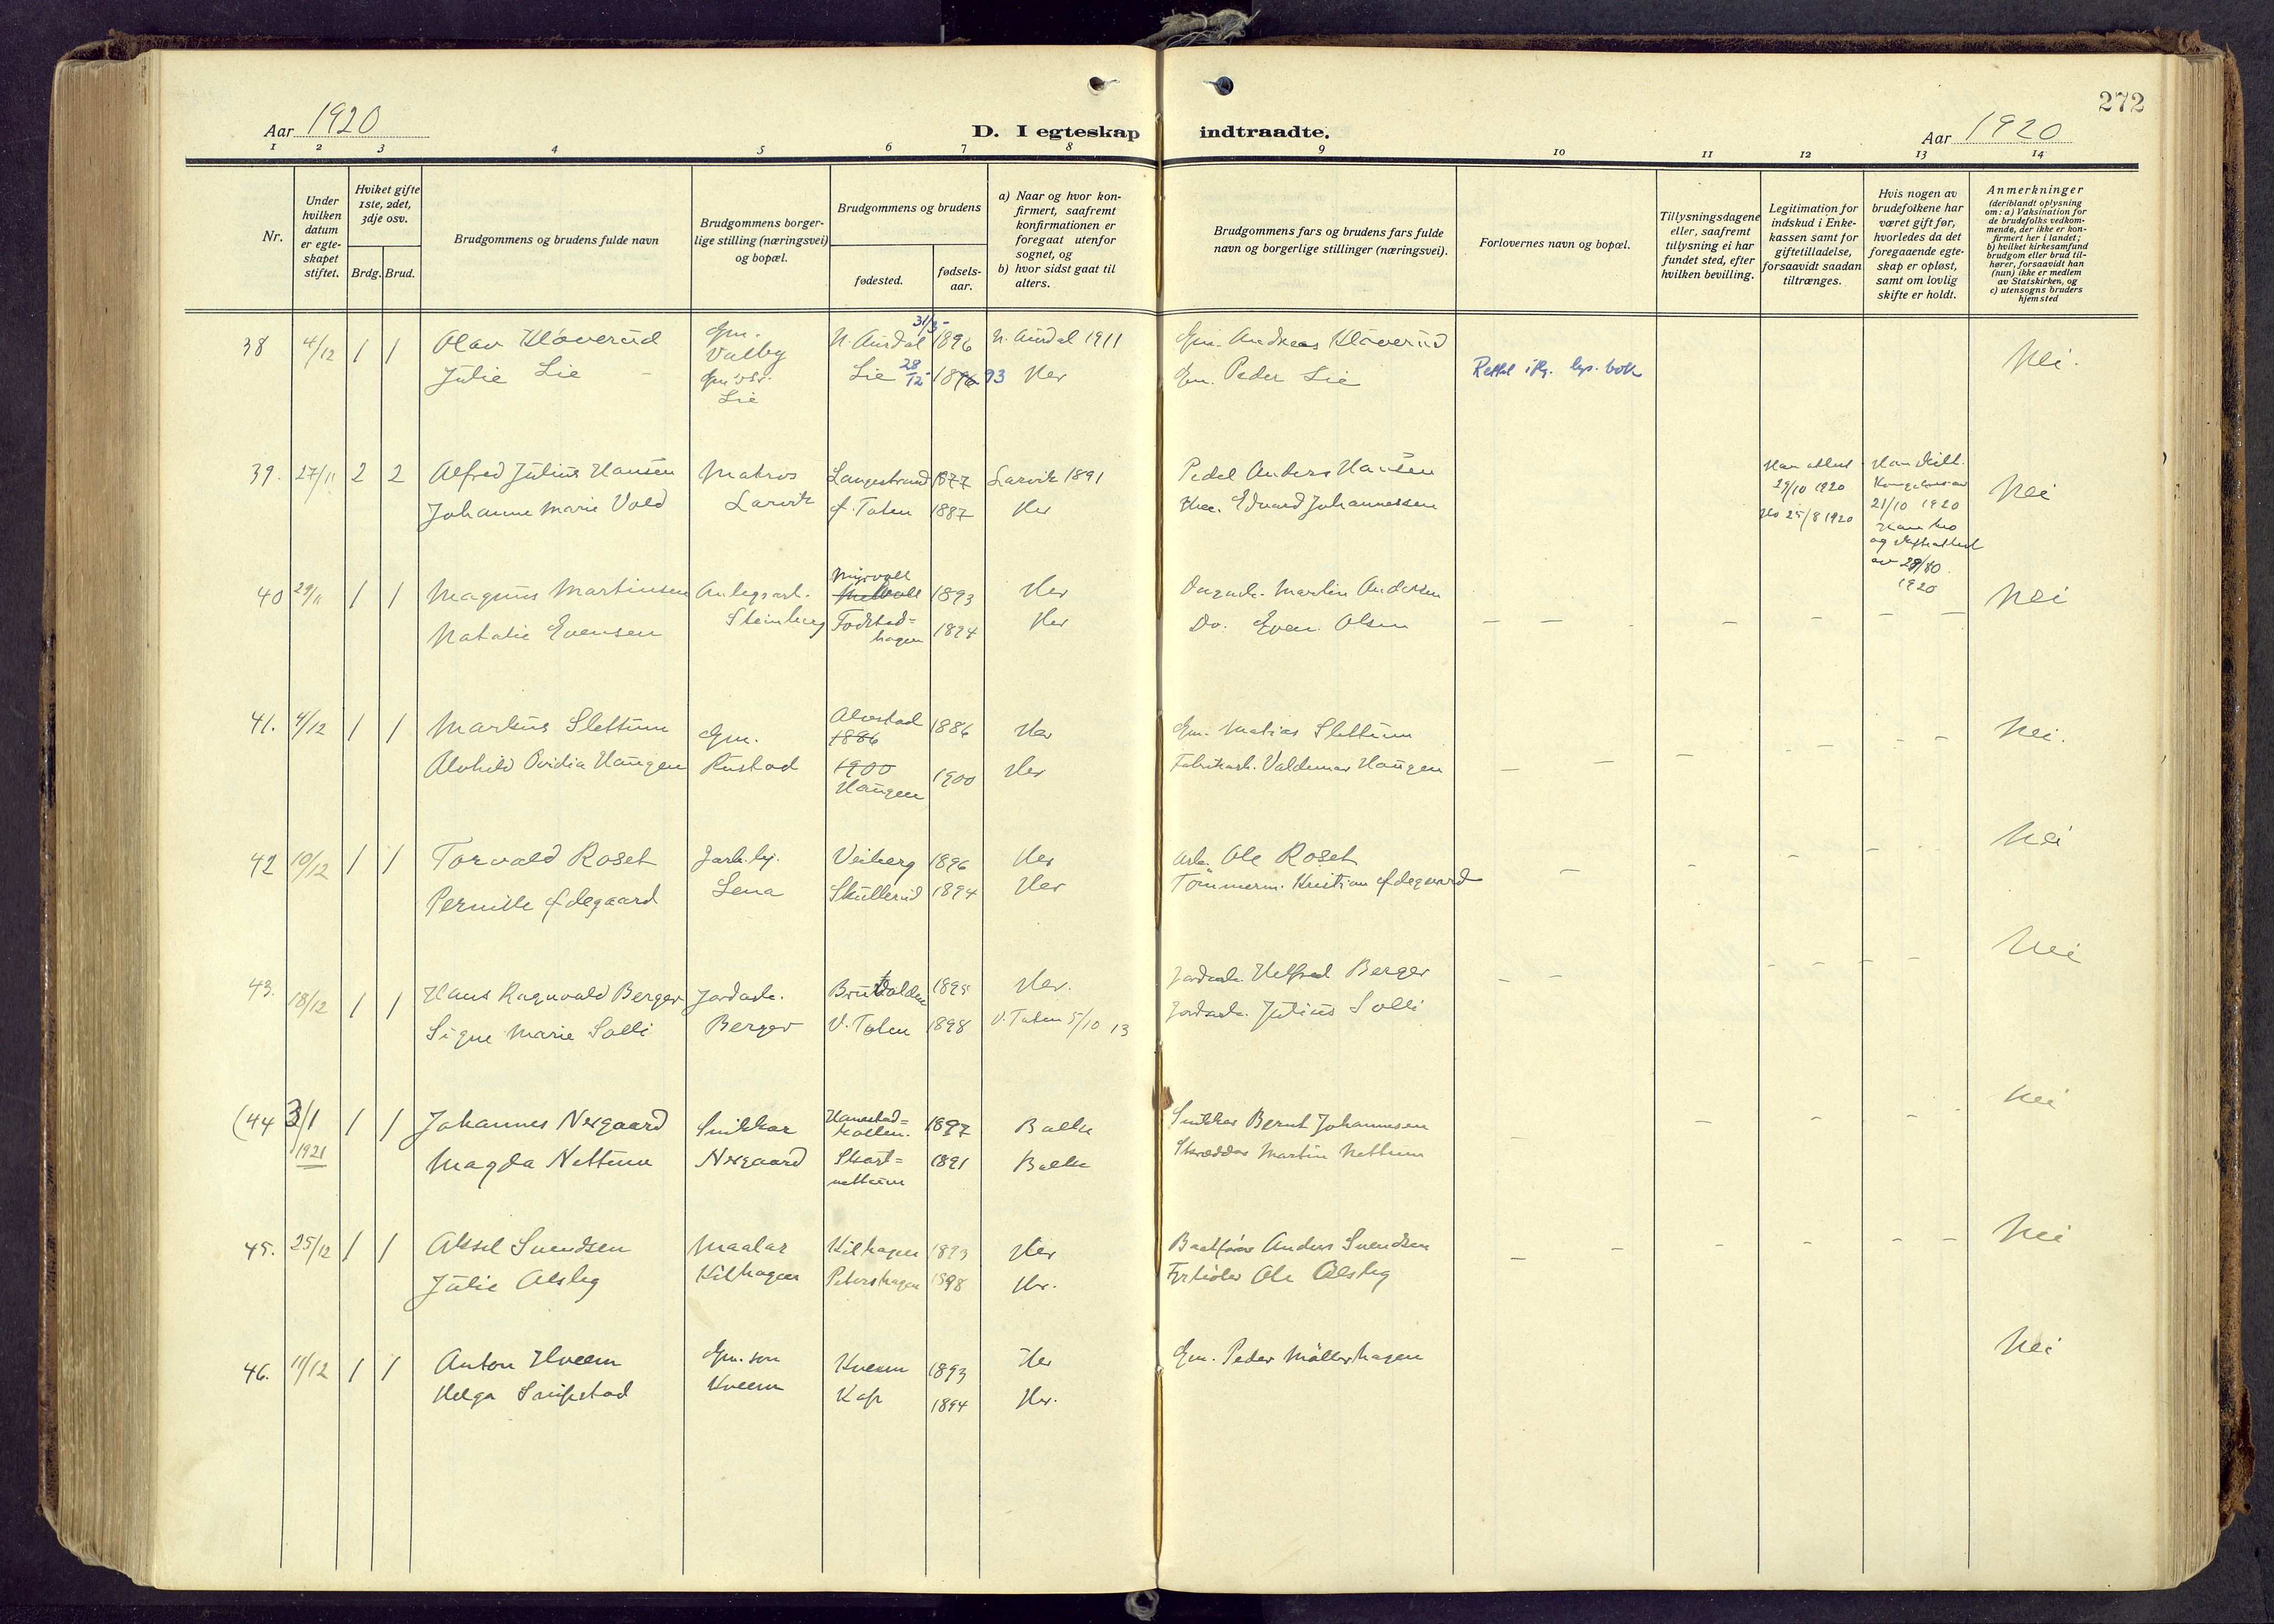 272
Aar 1920
D. I egteskap indtraadte.
Aar 1920
1 2 3 4 5 6 7 8 9 10 11 12 13 14
Nr.
Under hvilken datum er egteskapet stiftet.
Hviket gifte 1ste, 2det, 3dje osv.
Brdg. Brud.
Brudgommens og brudens fulde navn
Brudgommens borgerlige stilling (næringsvei) og bopæl.
Brudgommens og brudens
fødested.
fødselsaar.
a) Naar og hvor konfirmert, saafremt konfirmationen er foregaat utenfor sognet, og
b) hvor sidst gaat til alters.
Brudgommens fars og brudens fars fulde navn og borgerlige stillinger (næringsvei).
Forlovernes navn og bopæl.
Tillysningsdagene eller, saafremt tillysning ei har fundet sted, efter hvilken bevilling.
Legitimation for indskud i Enkekassen samt for giftetilladelse, forsaavidt saadan tiltrænges.
Hvis nogen av brudefolkene har været gift før, hvorledes da det foregaaende egteskap er opløst, samt om lovlig skifte er holdt.
Anmerkninger (deriblandt oplysning om: a) Vaksination for de brudefolks vedkommende, der ikke er konfirmert her i landet; b) hvilket kirkesamfund brudgom eller brud tilhører, forsaavidt han (hun) ikke er medlem av Statskirken, og c) utensogns bruders hjemsted
38 4/12 1 1 Olav Kløverud Gm. Valby N. Aurdal 31/5 1896 N. Aurdal 1911 Gm. Andreas Kløverud Nei.
Julie Lie Lie Lie 28/12 1896 93 Her Gm. Peder Lie
39. 27/11 2 2 Alfred Julius Hansen Matros Langestrand 1877 Larvik 1891 Pedel Anders Hansen 29/10 1920 21/10 1920 Nei
Johanne Marie Vold Larvik Ø. Toten 1887 Her Eduard Johannessen Ho 25/8 1920 1920
40 29/11 1 1 Magnus Martinsen Anlegsarb. 1893 Her Dagarb. Martin Andersen Nei
Natalie Evensen Steinberg Fodstadhagen 1894 Her Do. Even Olsen
41. 4/12 1 1 Markus Slettum Gm. Alvstad 1886 1886 Her Gm. Matias Slettum Nei.
Alvhild Ovidia Haugen Rustad 1900 Haugen 1900 Her Fabrikarb. Valdemar Haugen
42 10/12 1 1 Torvald Roset Jarb.bj. Veiberg 1896 Her Arb. Ole Roset Nei
Pernille Ødegaard Lena Skullerud 1894 Her Tømmerm. Kristian Ødegaard
43. 18/12 1 1 Hans Ragnvald Berger Jordarb. 1895 Her. Jordarb. Helfred Berger Nei
Signe Marie Solli Berger V. Toten 1898 V. Toten 5/10 13 Jordarb. Julius Solli
(44 3/1 1921 1 1 Johannes Nergaard Snikkar 1897 Balke Snikker Bernt Johannesen Nei
Magda Nettum Nergaard Skartnettum 1891 Balke Skrædder Martin Nettum
45. 25/12 1 1 Aksel Svendsen Maalar Kilhagen 1893 Her Baatfører Anders Svendsen Nei
Julie Alsteg Kilhagen Petershagen 1898 Her. Fyrbøter Ole Alsteg
46. 11/12 1 1 Anton Hveem Gm. son Kveem 1893 Her Gm. Peder Møllerhagen Nei
Helga Snipstad Kveem Kap 1894 Her.